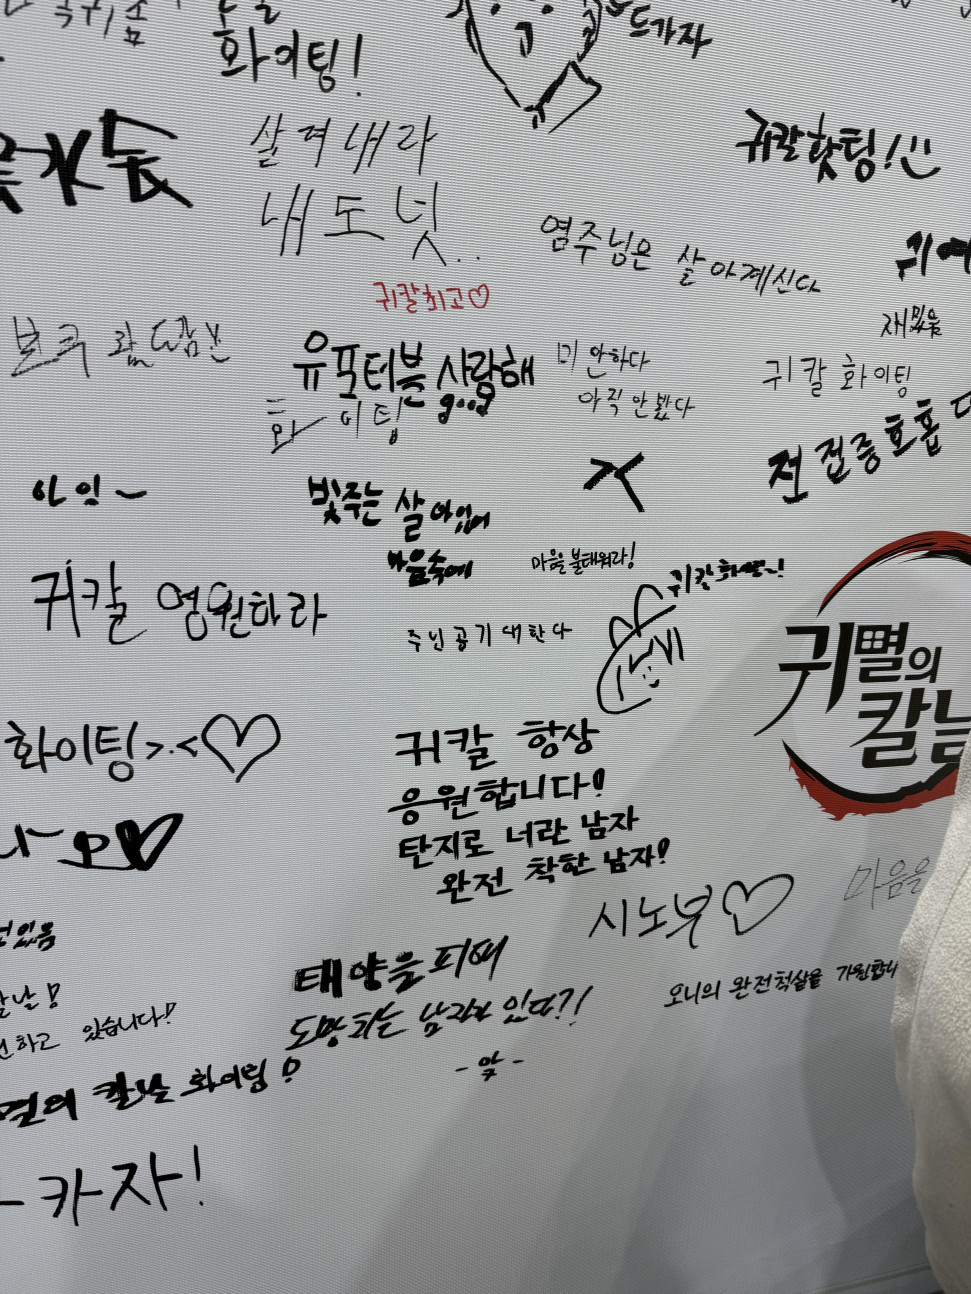 화이팅!
드가자
살려내라
내 도넛..
귀칼핫팅!
염주님은 살아계신다
귀칼최고♡
유포터블 사랑해
화이팅
good
미안하다
아직 안봤다
재밌음
귀칼 화이팅
전집중호흡
아잇~
빛주는 살아있어
마음속에
마음을 불태워라!
귀칼 화이팅~!
귀칼 영원하라
주인공기대한다
귀멸의
칼날
화이팅>.<♡
귀칼 항상
응원합니다!
탄지로 너란 남자
완전 착한 남자!
시노부♡
마음을
태양을 피해
도망치는 남자가 있다?!
오니의 완전척살을 기원합니
하고 있습니다!
멸의 칼날 화이팅!
카자!